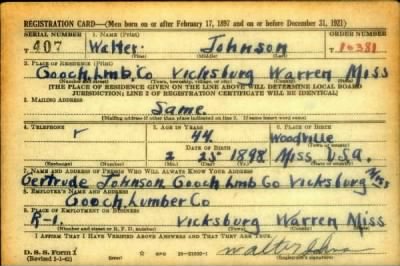 REGISTRATION CARD—(Men born on or after February 17, 1897 and on or before December 31, 1921)
SERIAL NUMBER 1. NAME (Print) ORDER NUMBER
T 407 Walter Johnson 10381
(First) (Middle) (Last)
2. PLACE OF RESIDENCE (Print)
Gooch Lmb. Co Vicksburg Warren Miss
(Number and street) (Town, township, village, or city) (County) (State)
[THE PLACE OF RESIDENCE GIVEN ON THE LINE ABOVE WILL DETERMINE LOCAL BOARD
JURISDICTION; LINE 2 OF REGISTRATION CERTIFICATE WILL BE IDENTICAL]
3. MAILING ADDRESS
Same.
(Mailing address if other than place indicated on line 2. If same insert word same)
4. TELEPHONE 5. AGE IN YEARS 6. PLACE OF BIRTH
44 Woodville
DATE OF BIRTH (Town or county)
2 25 1898 Miss U.S.A.
(Exchange) (Number) (Mo.) (Day) (Yr.) (State or country)
7. NAME AND ADDRESS OF PERSON WHO WILL ALWAYS KNOW YOUR ADDRESS
Gertrude Johnson Gooch Lmb Co Vicksburg Miss
8. EMPLOYER'S NAME AND ADDRESS
Gooch Lumber Co
9. PLACE OF EMPLOYMENT OR BUSINESS
R-1. Vicksburg Warren Miss
(Number and street or R. F. D. number) (Town) (County) (State)
I AFFIRM THAT I HAVE VERIFIED ABOVE ANSWERS AND THAT THEY ARE TRUE.
D. S. S. Form 1
(Revised 1-1-42) GPO Walter Johnson